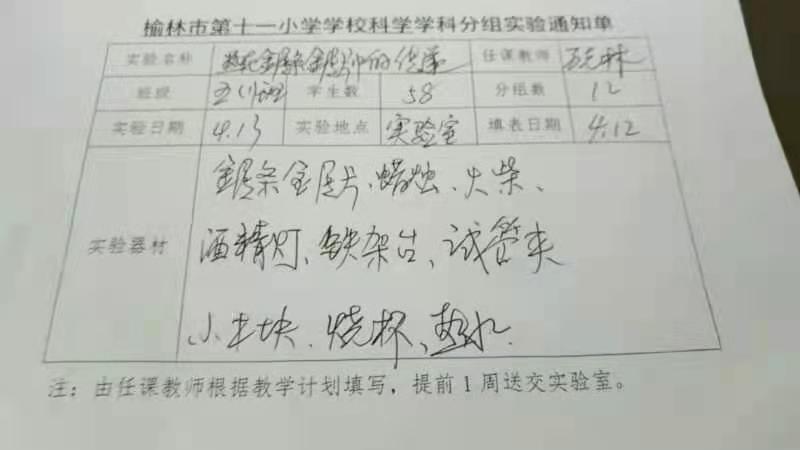 榆林市第十一小学学校科学学科分组实验通知单
实验名称 热在金属条金属片中的传递 任课教师
班级 学生数 58 分组数 12
实验日期 4.13 实验地点 实验室 填表日期 4.12
实验器材 铜条金属片、蜡烛、火柴、
酒精灯、铁架台、试管夹
小木块、烧杯、热水.
注：由任课教师根据教学计划填写，提前1周送交实验室。